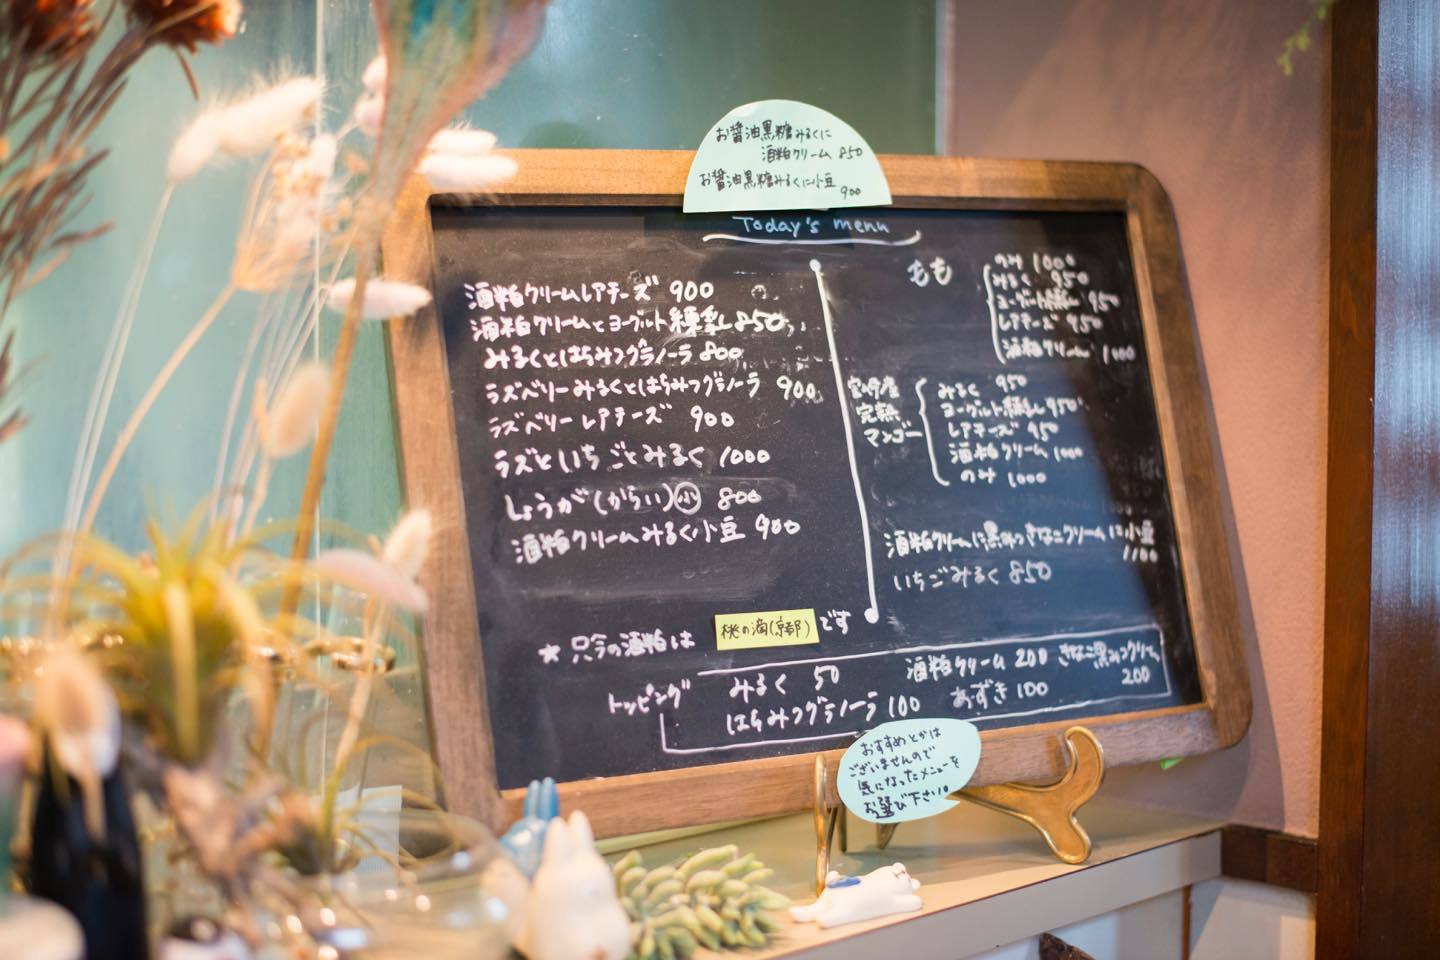 お醤油黒糖みるくに
酒粕クリーム 850
お醤油黒糖みるくに小豆
900
Today's menu
酒粕クリームレアチーズ 900
酒粕クリームとヨーグルト練乳 850
みるくとはちみつグラノーラ 800
ラズベリーみるくとはちみつグラノーラ 900
ラズベリーレアチーズ 900
ラズといちごとみるく 1000
しょうが(からい)小 800
酒粕クリームみるく小豆 900
もも
のみ 1000
みるく 950
ヨーグルト練乳 950
レアチーズ 950
酒粕クリーム 1000
宮崎産
完熟
マンゴー
みるく 950
ヨーグルト練乳 950
レアチーズ 950
酒粕クリーム 1000
のみ 1000
酒粕クリームに黒みつきなこクリームに小豆
1100
いちごみるく 850
★ 只今の酒粕は 桃の滴(京都) です
トッピング
みるく 50
はちみつグラノーラ 100
酒粕クリーム 200
あずき 100
きなこ黒みつクリーム
200
おすすめとかは
ございませんので
気になったメニューを
お選び下さい。